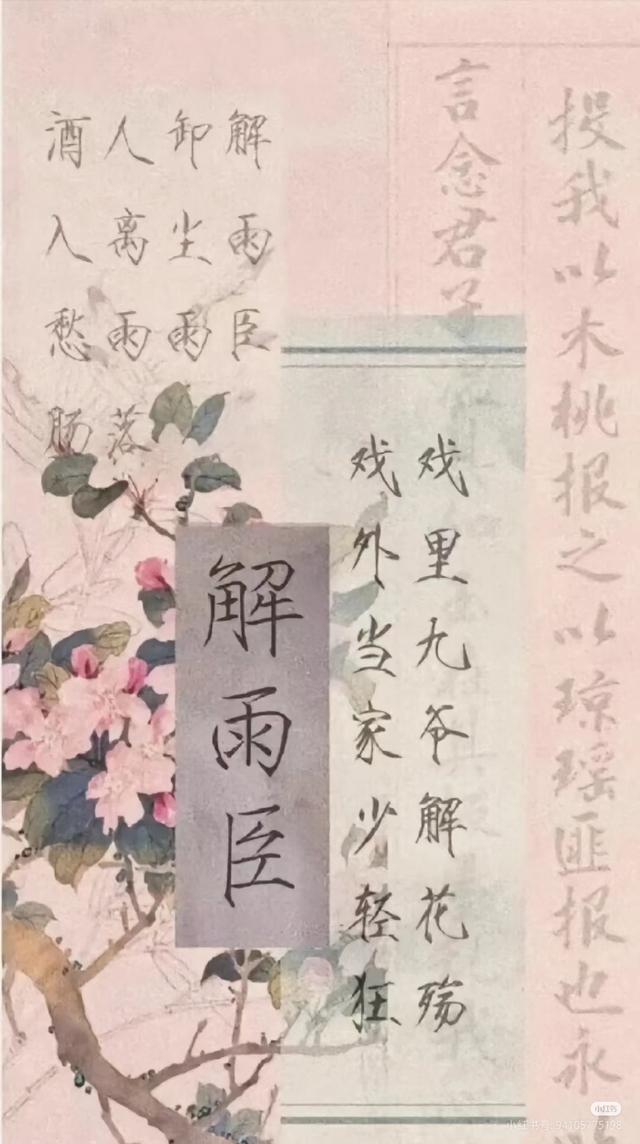 投我以木桃报之以琼瑶匪报也永
言念君子
戏里九爷解花殇
戏外当家少轻狂
解雨臣
解雨臣
卸尘雨
人离雨落
酒入愁肠
小红书
小红书号:94105775198